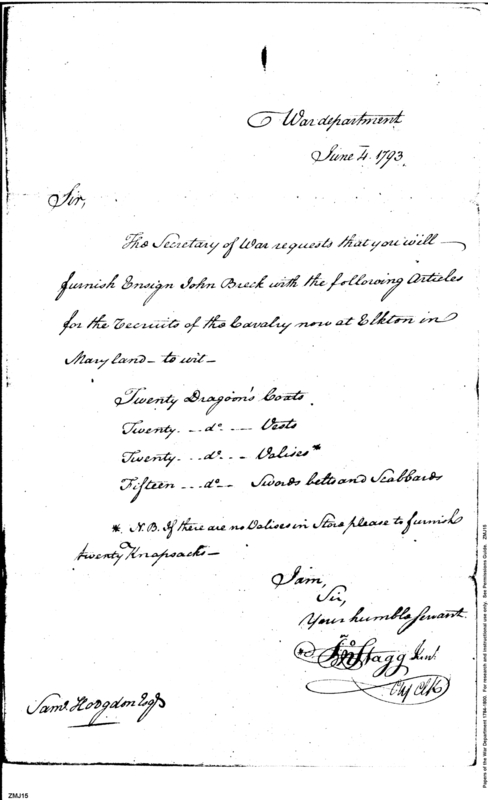 War department
June 4. 1793.
Sir,
The Secretary of War requests that you will
furnish Ensign John Breck with the following Articles
for the Recruits of the Cavalry now at Elkton in
Maryland - to wit -
Twenty Dragoon's Coats
Twenty - do - Vests
Twenty - do - Valises*
Fifteen - do - Swords belts and Scabbards
* N.B. If there are no Valises in Store please to furnish
twenty Knapsacks -
I am,
Sir,
Your humble Servant
Jno Stagg Junr.
Ch Clk
Saml. Hodgdon Esqr.
ZMJ15
Papers of the War Department 1784-1800. For research and instructional use only. See Permissions Guide. ZMJ15